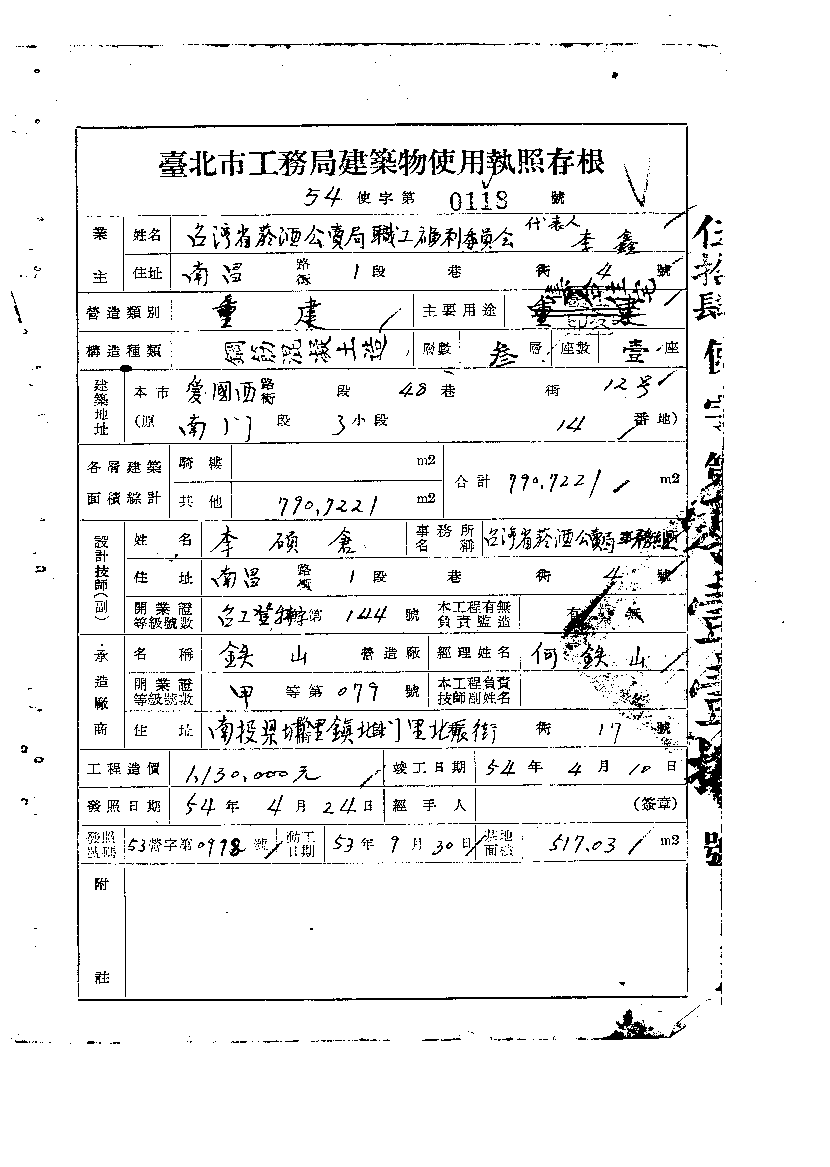 臺北市工務局建築物使用執照存根
54 使字第 0113 號
業主 姓名 台湾省菸酒公賣局職工福利委員会 代表人 李鑫
住址 南昌 路街 1 段 巷 衖 4 號
營造類別 重建 主要用途
構造種類 鋼筋混凝土造 層數 叁 層 座數 壹 座
建築地址 本市 愛國西 路街 段 48 巷 衖 12号
(原 南门 段 3 小段 14 番地)
各層建築面積綜計 騎樓 m2 合計 790.7221 m2
其他 790.7221 m2
設計技師(副) 姓名 李碩倉 事務所名稱 台湾省菸酒公賣局
住址 南昌 路街 1 段 巷 衖 4 號
開業證等級號數 台工登 字第 144 號 本工程有無負責監造 有 無
承造廠商 名稱 鉄山 營造廠 經理姓名 何鉄山
開業證等級號數 甲 等第 079 號 本工程負責技師副姓名
住址 南投県埔里鎮北门里北振街 衖 17 號
工程造價 1,130,000元 竣工日期 54 年 4 月 10 日
發照日期 54 年 4 月 24 日 經手人 (簽章)
發照號碼 53 營字第 0978 號 動工日期 53 年 9 月 30 日 基地面積 517.03 m2
附註
伍拾肆使字第
號